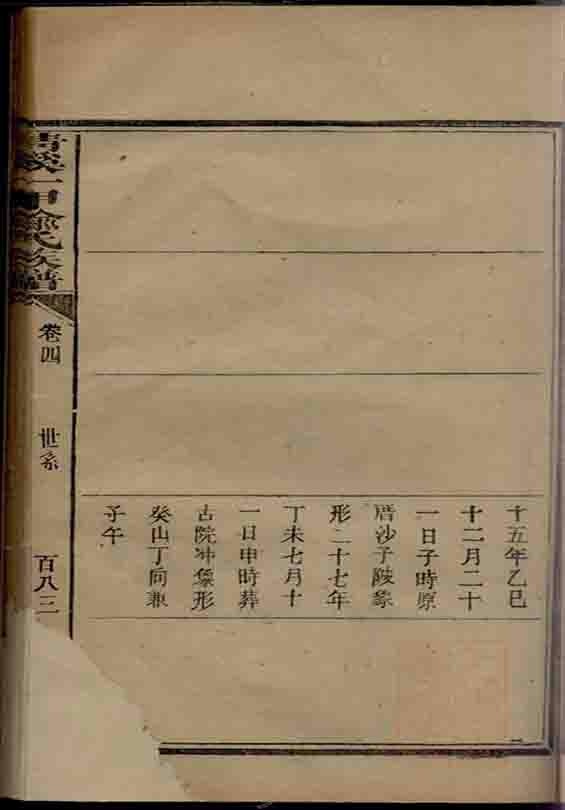 十五年乙巳
十二月二十
一日子時原
厝沙子陂象
形二十七年
丁未七月十
一日申時葬
古院冲象形
癸山丁向兼
子午
清溪一甲余氏族譜
卷四
世系
百八三